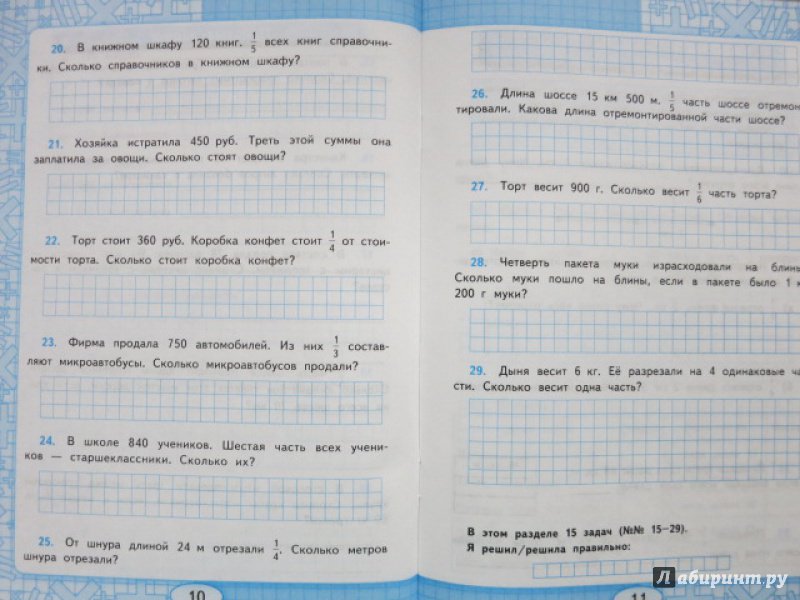 20. В книжном шкафу 120 книг. 1/5 всех книг справочни-
ки. Сколько справочников в книжном шкафу?
21. Хозяйка истратила 450 руб. Треть этой суммы она
заплатила за овощи. Сколько стоят овощи?
22. Торт стоит 360 руб. Коробка конфет стоит 1/4 от стои-
мости торта. Сколько стоит коробка конфет?
23. Фирма продала 750 автомобилей. Из них 1/3 состав-
ляют микроавтобусы. Сколько микроавтобусов продали?
24. В школе 840 учеников. Шестая часть всех учени-
ков — старшеклассники. Сколько их?
25. От шнура длиной 24 м отрезали 1/4. Сколько метров
шнура отрезали?
10
26. Длина шоссе 15 км 500 м. 1/5 часть шоссе отремон-
тировали. Какова длина отремонтированной части шоссе?
27. Торт весит 900 г. Сколько весит 1/6 часть торта?
28. Четверть пакета муки израсходовали на блины
Сколько муки пошло на блины, если в пакете было 1 к
200 г муки?
29. Дыня весит 6 кг. Её разрезали на 4 одинаковые ча
сти. Сколько весит одна часть?
В этом разделе 15 задач (№№ 15–29).
Я решил/решила правильно:
11
Лабиринт.ру